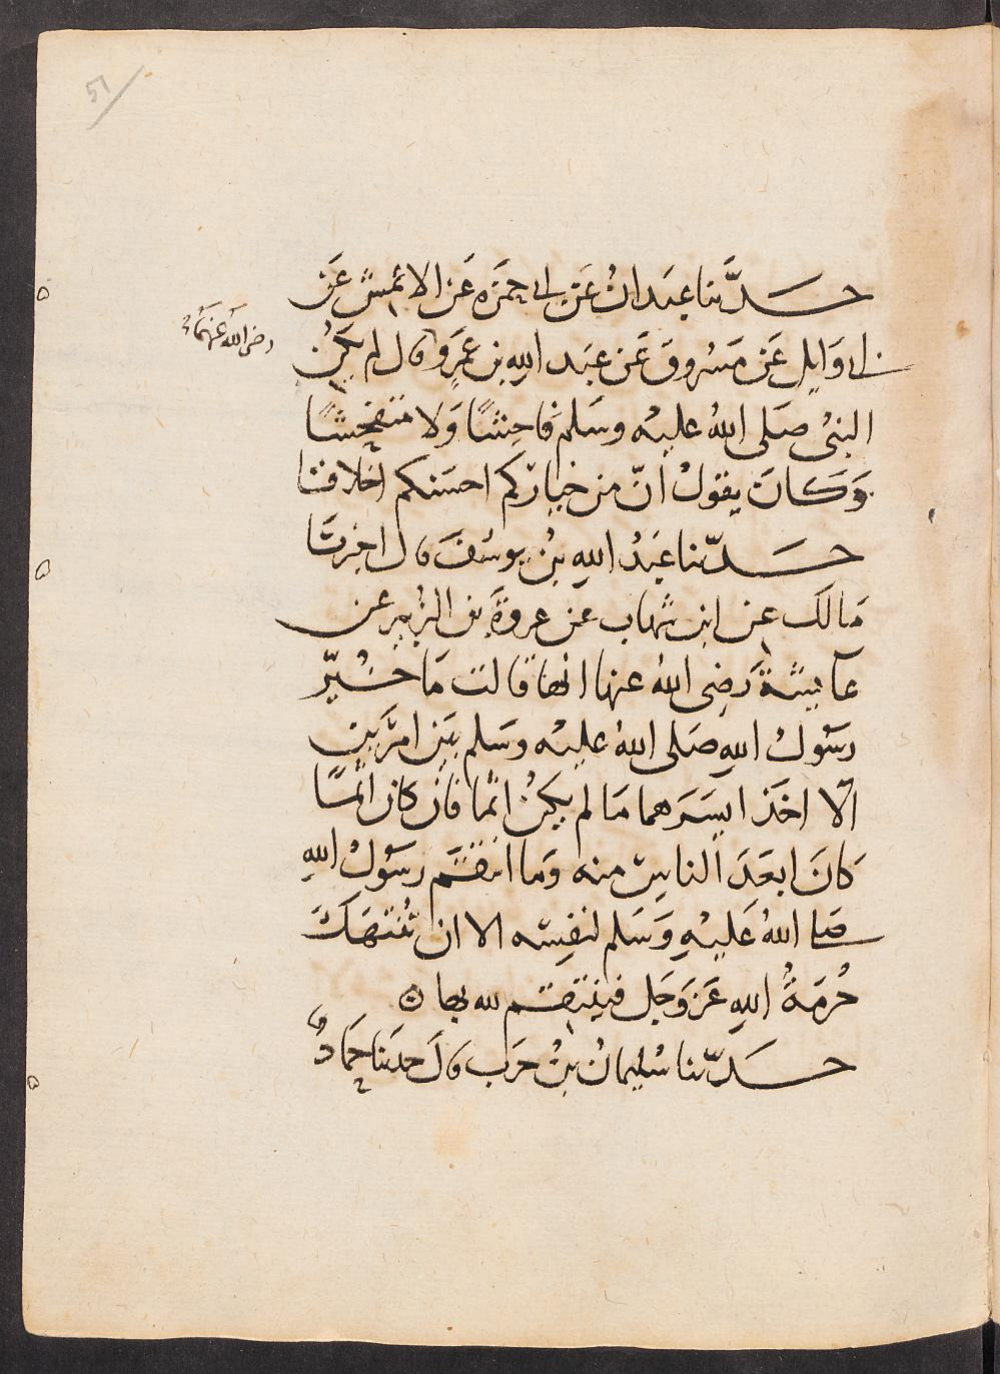 51
حَدَّثَنا عبَدانُ عَن ابى حمَزه عَن الاعمش عَن
ابى وَايِل عَن مَسْرُوقَ عَن عبَد اللهِ بن عَمرٍو قال لم يكنُ
رضى الله عنهمَا
النبىُ صَلى اللهُ عليْه وسَلم فَاحِشًا وَلا متفحشًا
وَكانَ يقولُ اِنّ من خياركم احسَنكم اخلاقا
حَدّثنا عَبَدُ اللهِ بنُ يوسُفَ قال اخبرنَا
مَالك عن ابن شهاب عن عروةَ بن الزبير عن
عآيشةَ رَضِى اللهُ عنها انها قالت مَا خُيّر
رسَولُ اللهِ صَلى اللهُ عليْه وسَلم بيَن امرَين
اِلّا اخَذ ايسَرَهما مَا لم يكنُ اثمًا فَان كان اثمًا
كانَ ابعَدَ الناسِ منه وَما انتقَم رسَولُ اللهِ
صَلى اللهُ عَليْهِ وَسَلم لنفسِه الا ان تُنتَهَكَ
حُرمَةُ اللهِ عَز وَجَل فينتقم لله بها
حَدّثنا سُليمانُ بنُ حَرب قالَ حدثنا حمَادٌ